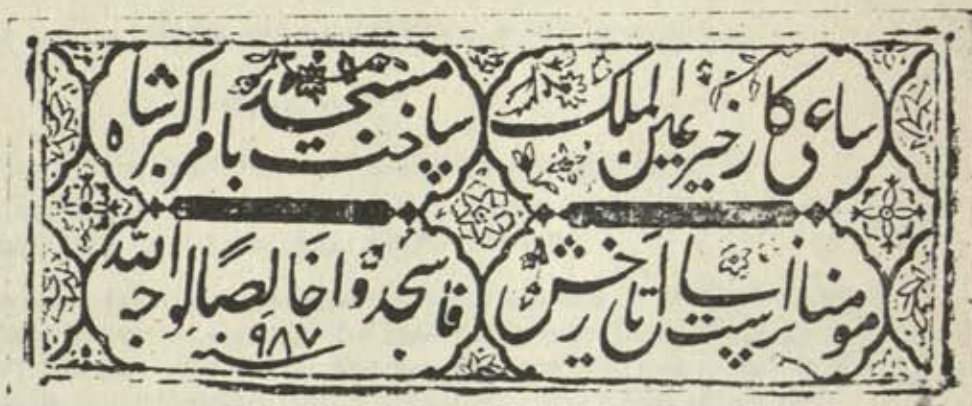 ساعی کار خیر عین الملک
مسجد ساخت بامر اکبر شاه
مومنانراست سال تاریخش
فاسجدوا خالصًا لوجه الله
سنه ٩٨٧